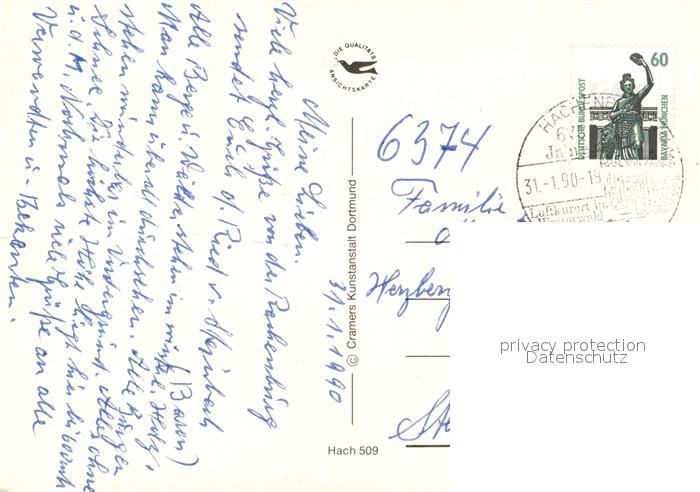 31.1.1990
Meine Lieben.
Viele herzl. Grüße von der Hachenburg
sendet Euch d. Ried v. Steinbach
(Baron)
Alle Berge u. Wälder stehen im
Man kann überall durchsehen. Alle Burgen
stehen wunderbar im Untergrund. Alles ohne
Schnee. Die höchste Höhe liegt hier bei
u. d. M. Nochmals viele Grüße an alle
Verwandten u. Bekannten.
DIE QUALITÄTS
ANSICHTSKARTE
© Cramers Kunstanstalt Dortmund
Hach 509
60
DEUTSCHE BUNDESPOST
BAVARIA MÜNCHEN
HACHENB
31.-1.90-19
Luftkurort im
Westerwald
6374
Familie
Herzber
St
privacy protection
Datenschutz